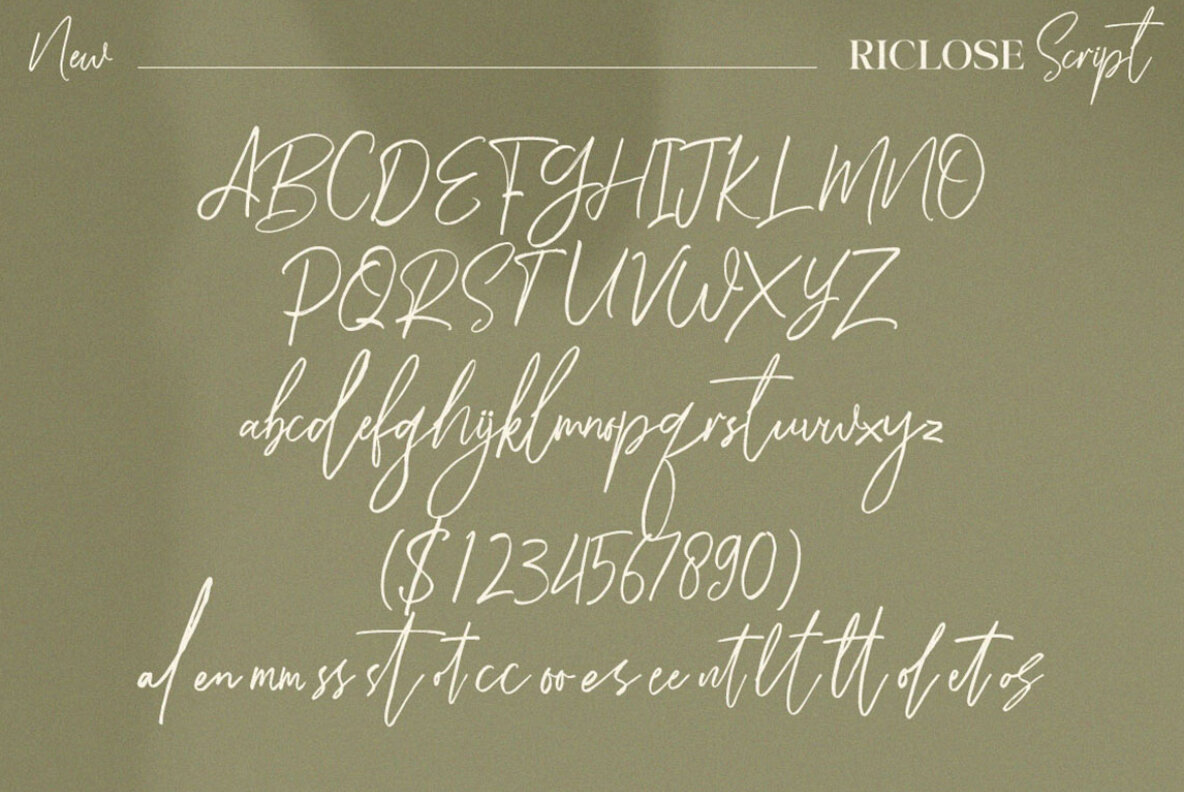 New RICLOSE Script
ABCDEFGHIJKLMNO
PQRSTUVWXYZ
abcdefghijklmnopqrstuvwxyz
($1234567890)
al en mm ss st ot cc oo es ee nt lt tt ol et os